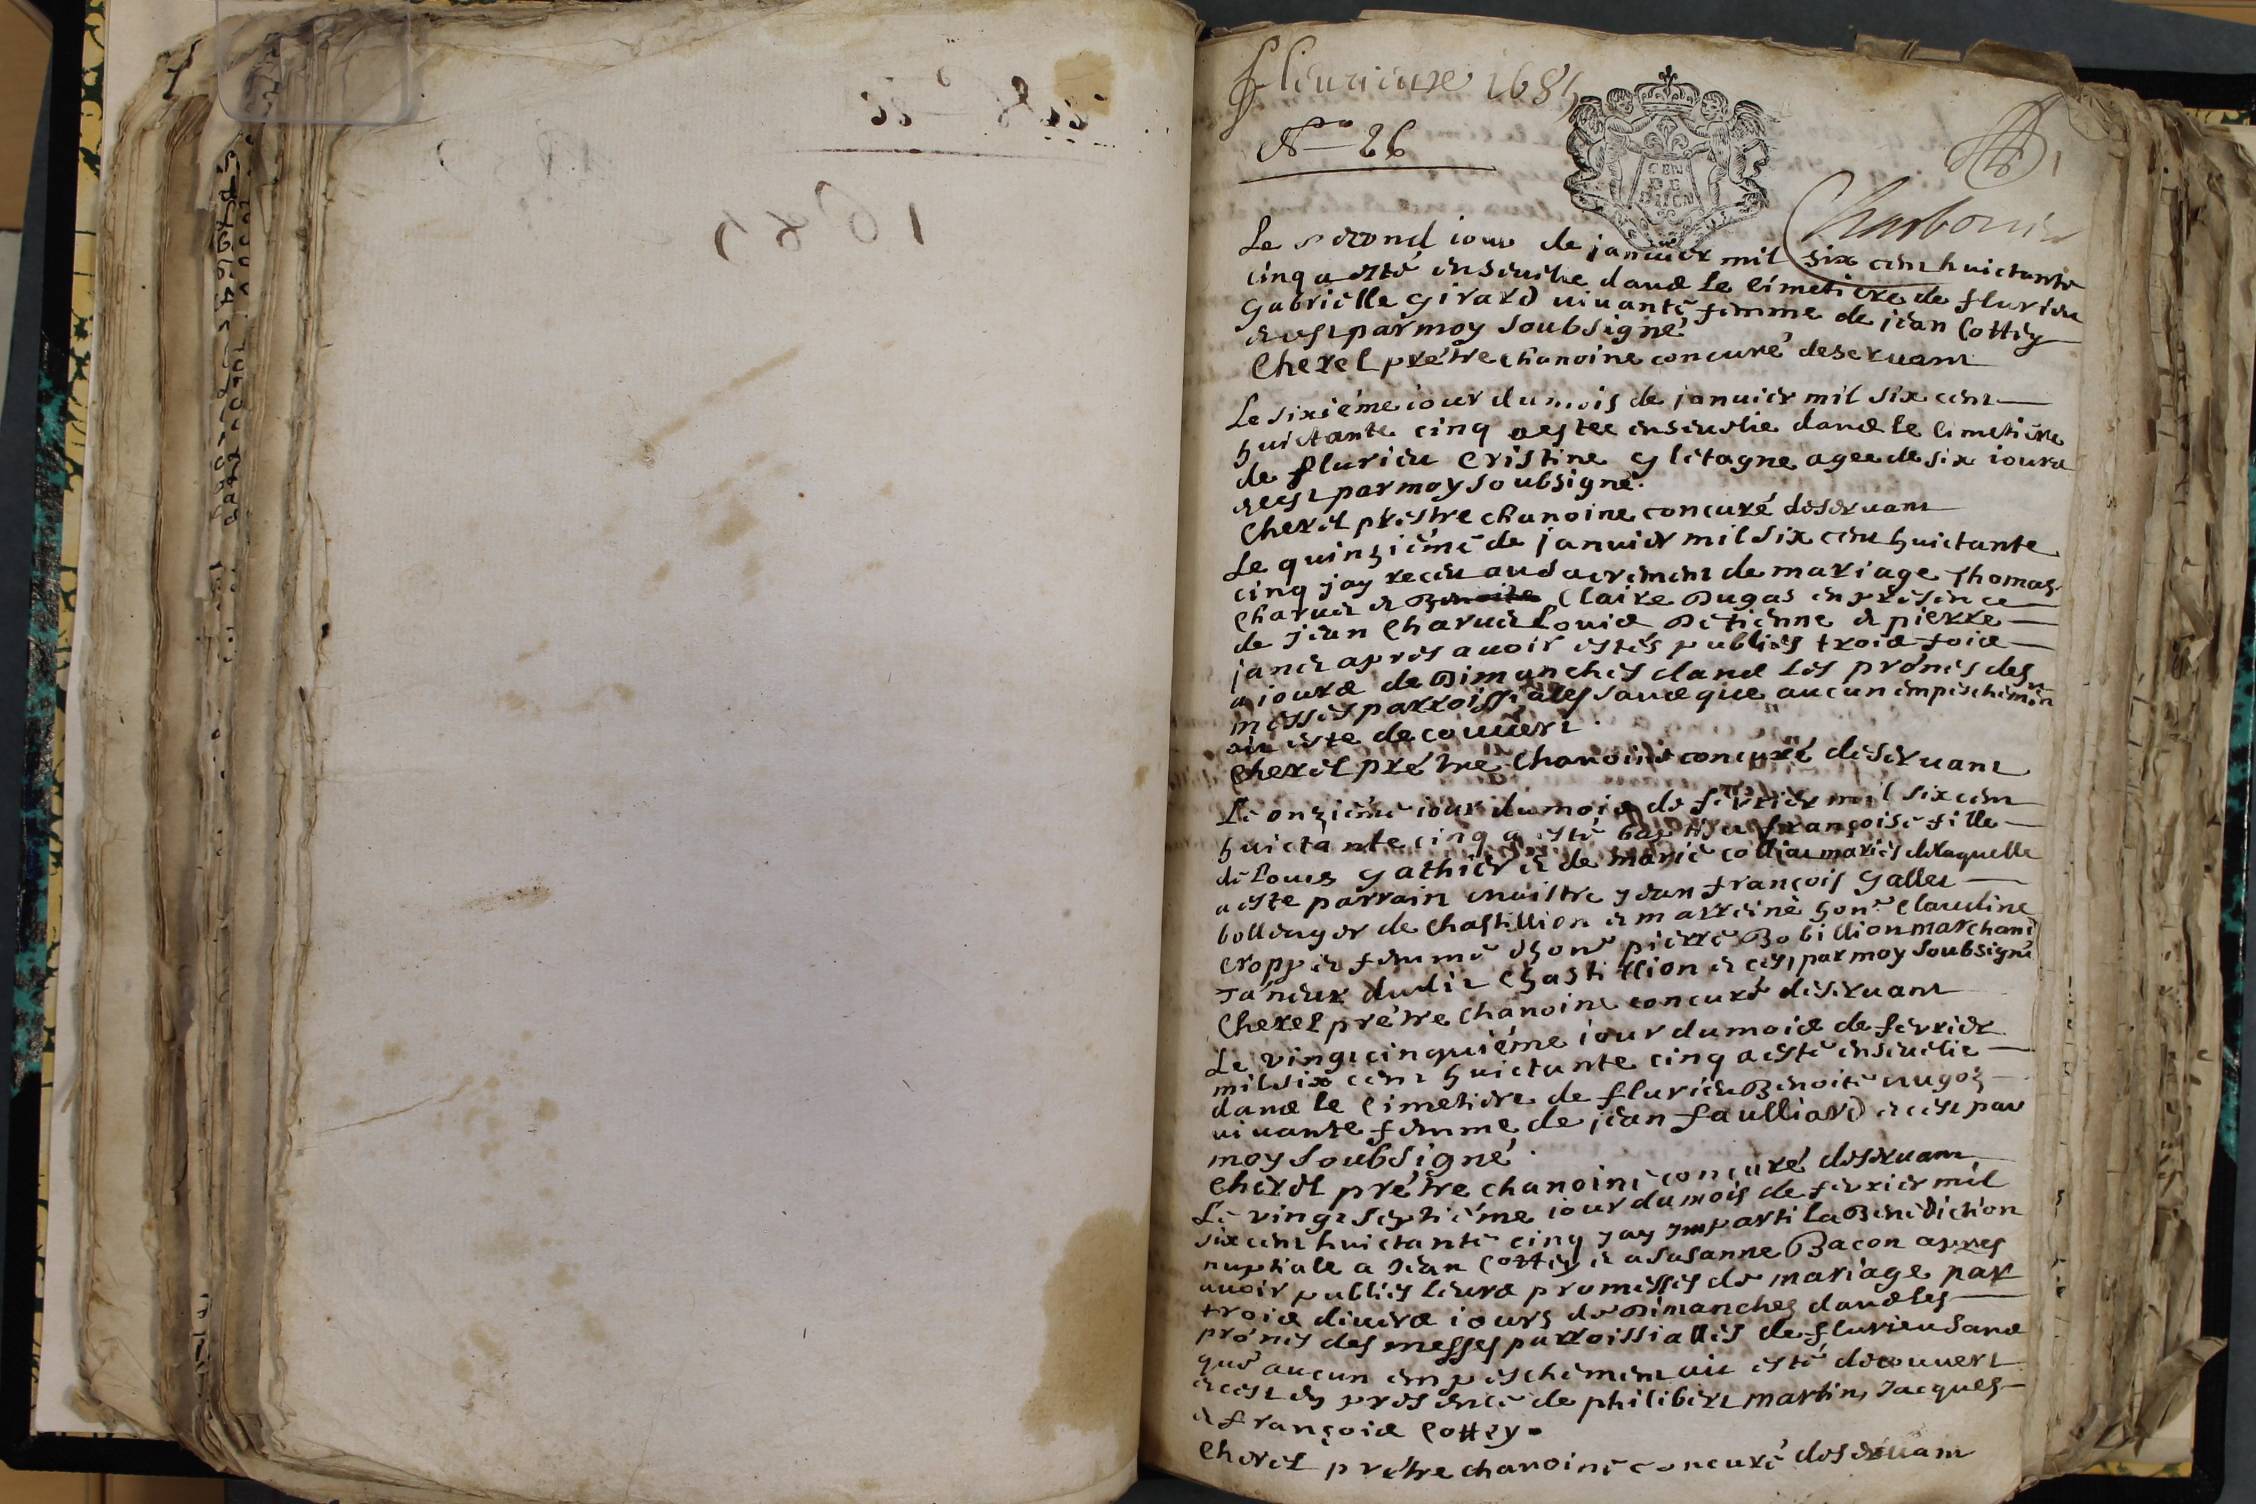 fleurieux 1685
N° 26
CEN
DE
BUGA
Charbonie
Le second iour de januier mil six cent huictante
cinq a esté enseuelie dans le cimetiere de flurieu
Gabrielle girard uiuante femme de jean Cottey
et ce par moy soubsigné
Cherel prétre chanoine concuré deseruant
Le sixiéme iour du mois de januier mil six cent
huictante cinq a estee enseuelie dans le cimetiere
de flurieu Cristine gletagne agee de six iours
et ce par moy soubsigné.
Cherel prestre chanoine concuré deseruant
Le quinziéme de januier mil six cent huictante
cinq jay receu au sacrement de mariage Thomas
Charuet et Claire Dugas en présence
de Jean Charuet Louis Detienne et pierre
janet apres auoir estés publiés trois fois
a iours de Dimanches dans les prônes des
messes parroissiales sans que aucun empeschement
aiu este decouuert
Cherel prétre chanoine concuré deseruant
Le onziéme iour du mois de féurier mil six cent
huictante cinq a esté baptisee françoise fille
de Louis gathier et de marie collia mariés de laquelle
a este parrain maistre jean françois gallet
bollenger de chastillion et marreine hon.e Claudine
cropper femme d'hon.e pierre Bobillion marchant
Taneur dudit Chastillion et ce par moy soubsigné
Cherel prétre chanoine concuré deseruant
Le vingt cinquiéme iour du mois de feurier
mil six cent huictante cinq a esté enseuelie
dans le cimetiere de flurieu Benoite nugoz
uiuante femme de jean faulliard et ce par
moy soubsigné.
Cherel prétre chanoine concuré deseruant
Le vingt septiéme iour du mois de feurier mil
six cent huictante cinq jay imparti la Benediction
nuptiale a Jean Cottey et a Susanne Bacon apres
auoir publies leurs promesses de mariage par
trois diuers iours de Dimanches dans les
prônes des messes parroissialles de flurieu sans
que aucun empeschement aiu esté decouuert
et ce en présence de philibert martin, Jacques
et françois Cottey.
Cherel prétre chanoine concuré deseruant